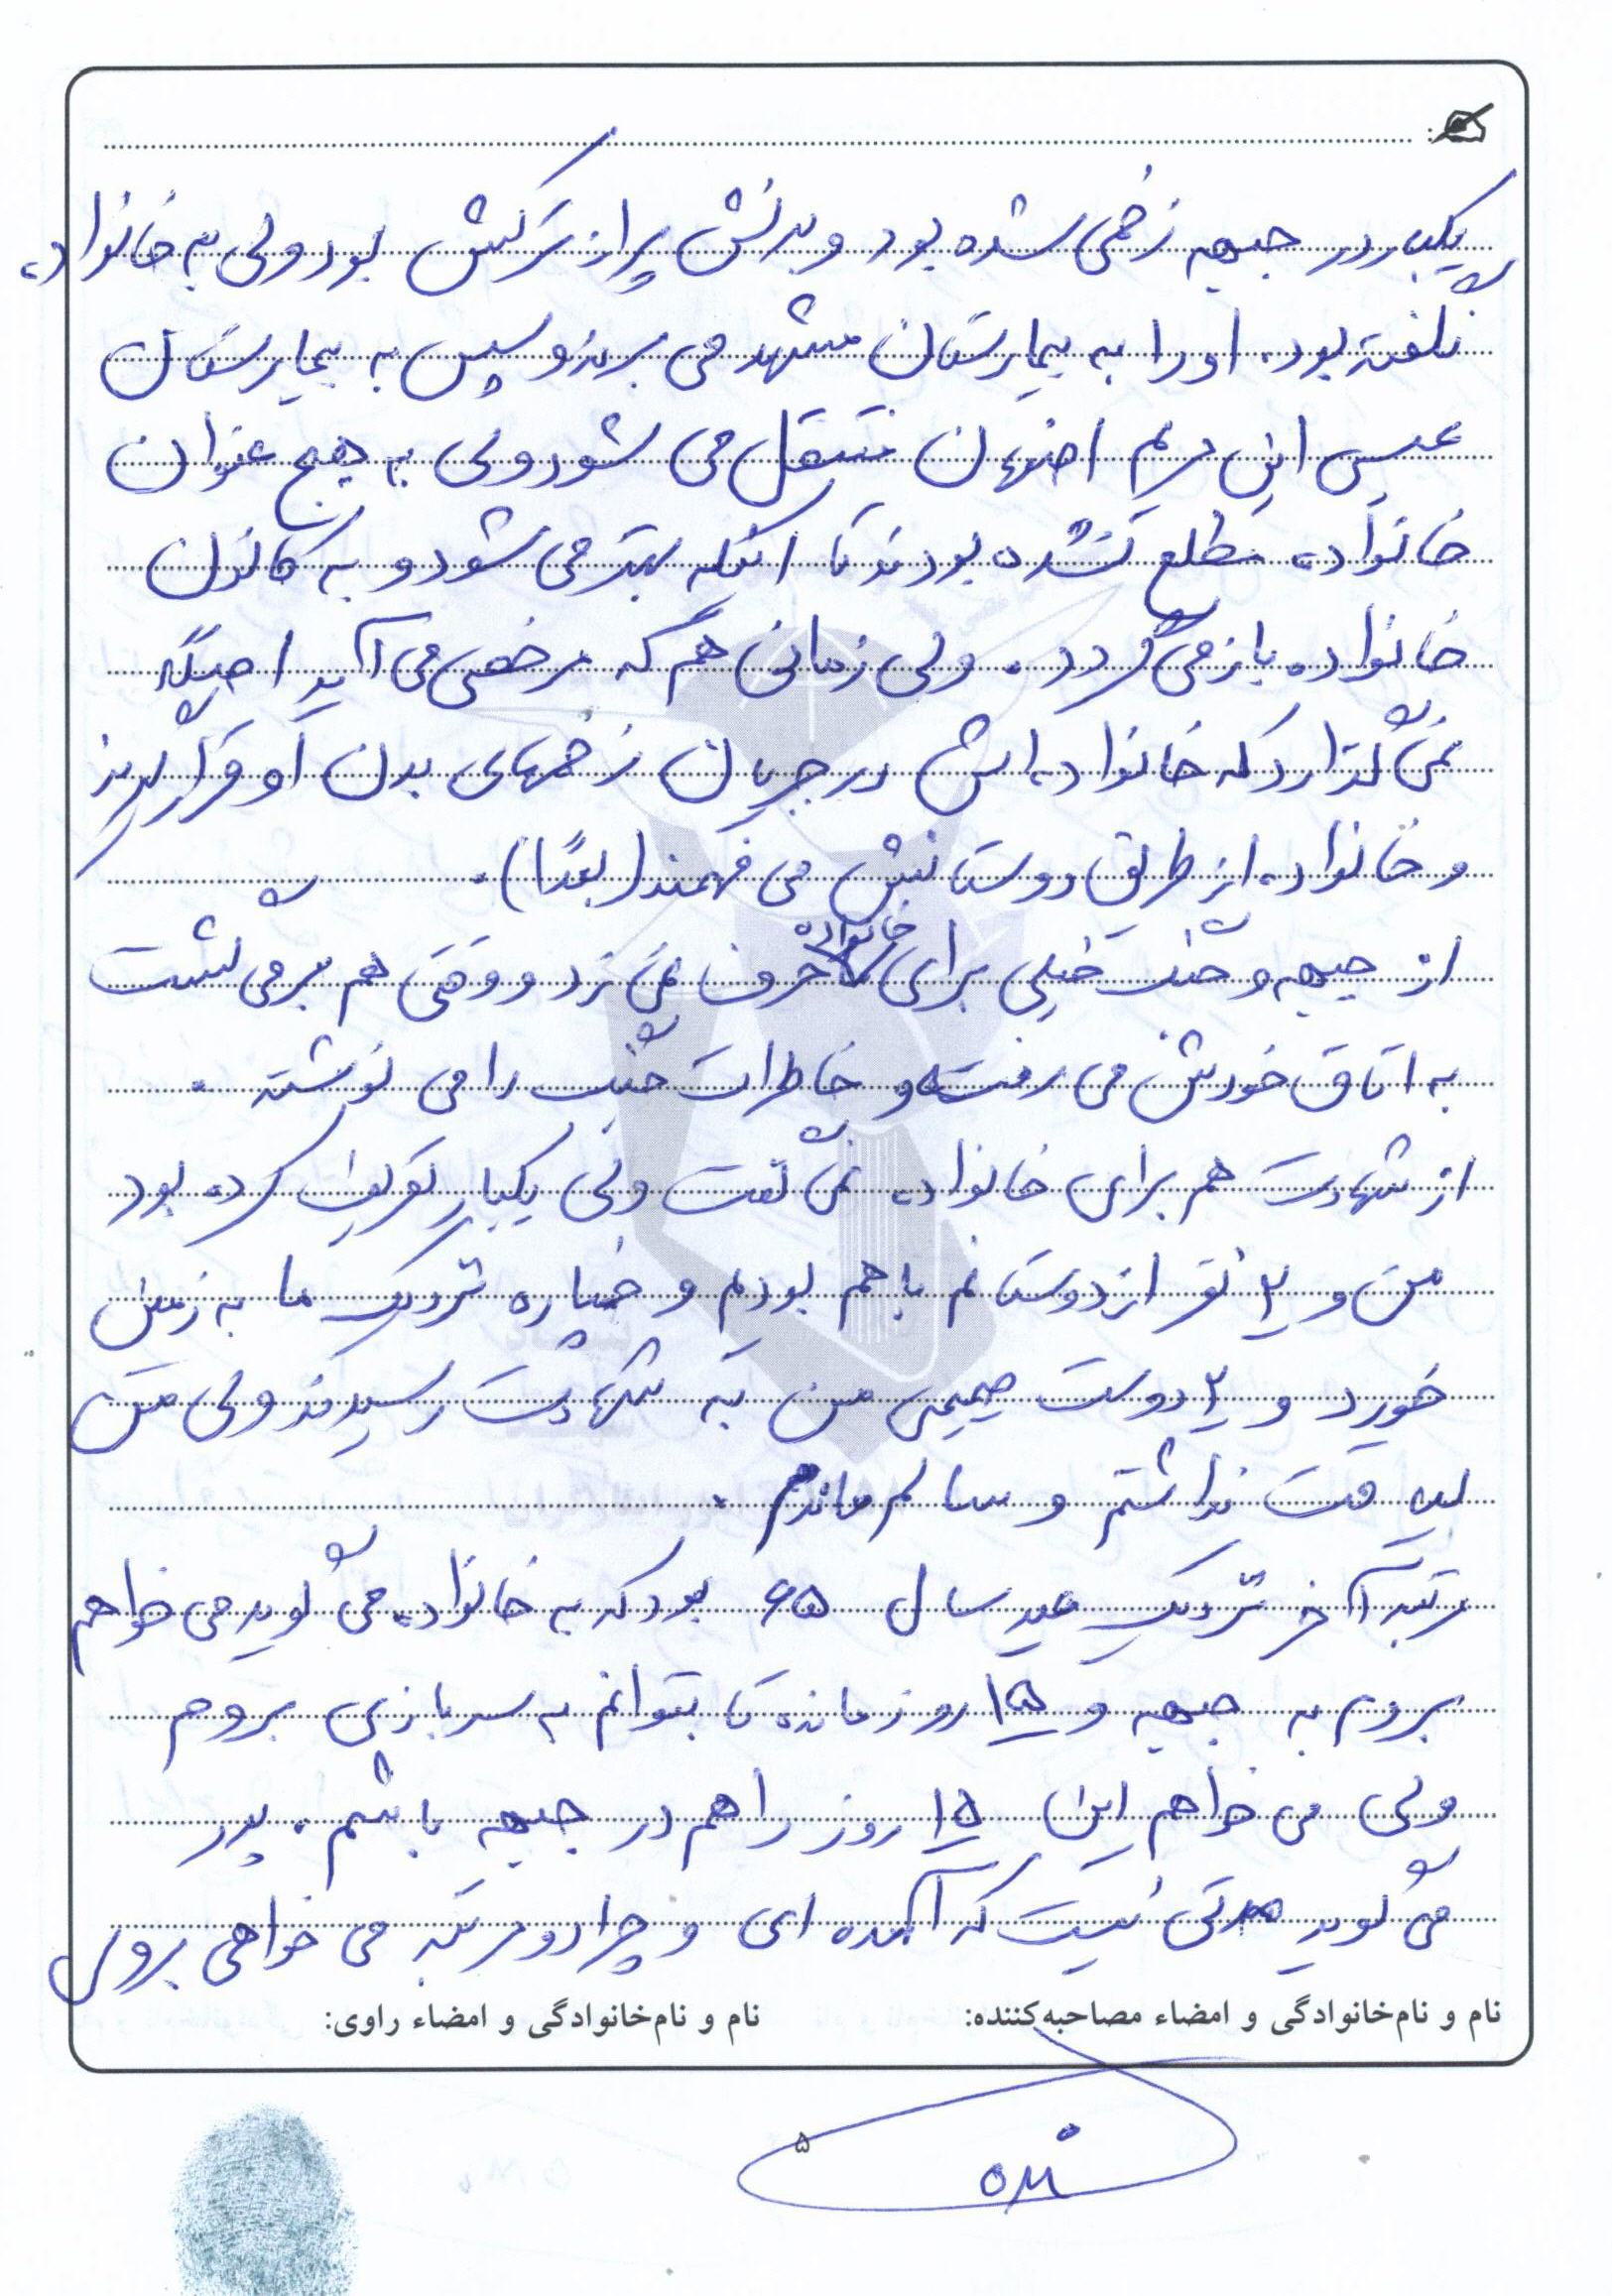 یکبار در جبهه زخمی شده بود و بدنش پر از ترکش بود ولی به خانواده
نگفته بود. او را به بیمارستان مشهد می برند و سپس به بیمارستان
عیسی ابن مریم اصفهان منتقل می شود ولی به هیچ عنوان
خانواده مطلع نشده بودند تا اینکه بهتر می شود و به کانون
خانواده باز می گردد. ولی زمانی هم که مرخصی می آید اصلاً
نمی گذارد که خانواده اش در جریان زخمهای بدن او قرار گیرند
و خانواده از طریق دوستانش می فهمند (بعدًا).
از جبهه و جنگ خیلی برای خانواده حرف نمی زد و وقتی هم برمی گشت
به اتاق خودش می رفته و خاطرات جنگ را می نوشته.
از شهادت هم برای خانواده نمی گفت ولی یکبار تعریف کرده بود
من و ۲ نفر از دوستانم با هم بودیم و خمپاره نزدیک ما به زمین
خورد و ۲ دوست صمیمی من به شهادت رسیدند ولی من
لیاقت نداشتم و سالم ماندم.
مرتبه آخر نزدیک عید سال ۶۵ بود که به خانواده می گوید می خواهم
بروم به جبهه و ۱۵ روز مانده تا بتوانم به سربازی بروم
ولی می خواهم این ۱۵ روز را هم در جبهه باشم. پدر
می گوید مدتی نیست که آمده ای و چرا دو مرتبه می خواهی بروی
نام و نام‌خانوادگی و امضاء مصاحبه‌کننده: نام و نام‌خانوادگی و امضاء راوی:
۵